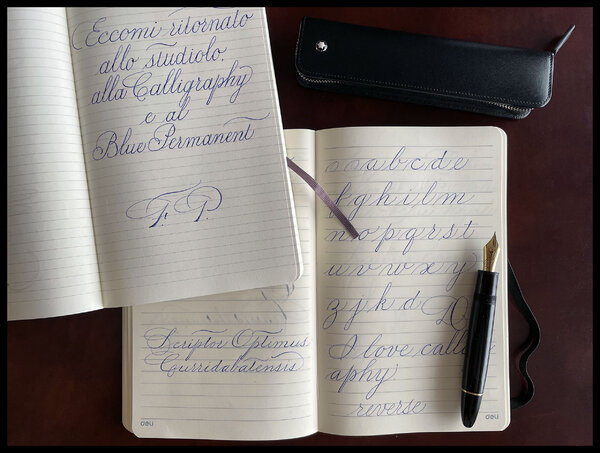 Eccomi ritornato
allo studiolo,
alla Calligraphy
e al
Blue Permanent
F. P.
Scriptor Optimus
Curridabatensis
deli
a a b c d e
f g h i l m
n o p q r s t
u v w x y
z j k d
I love calli
aphy
reverse
deli